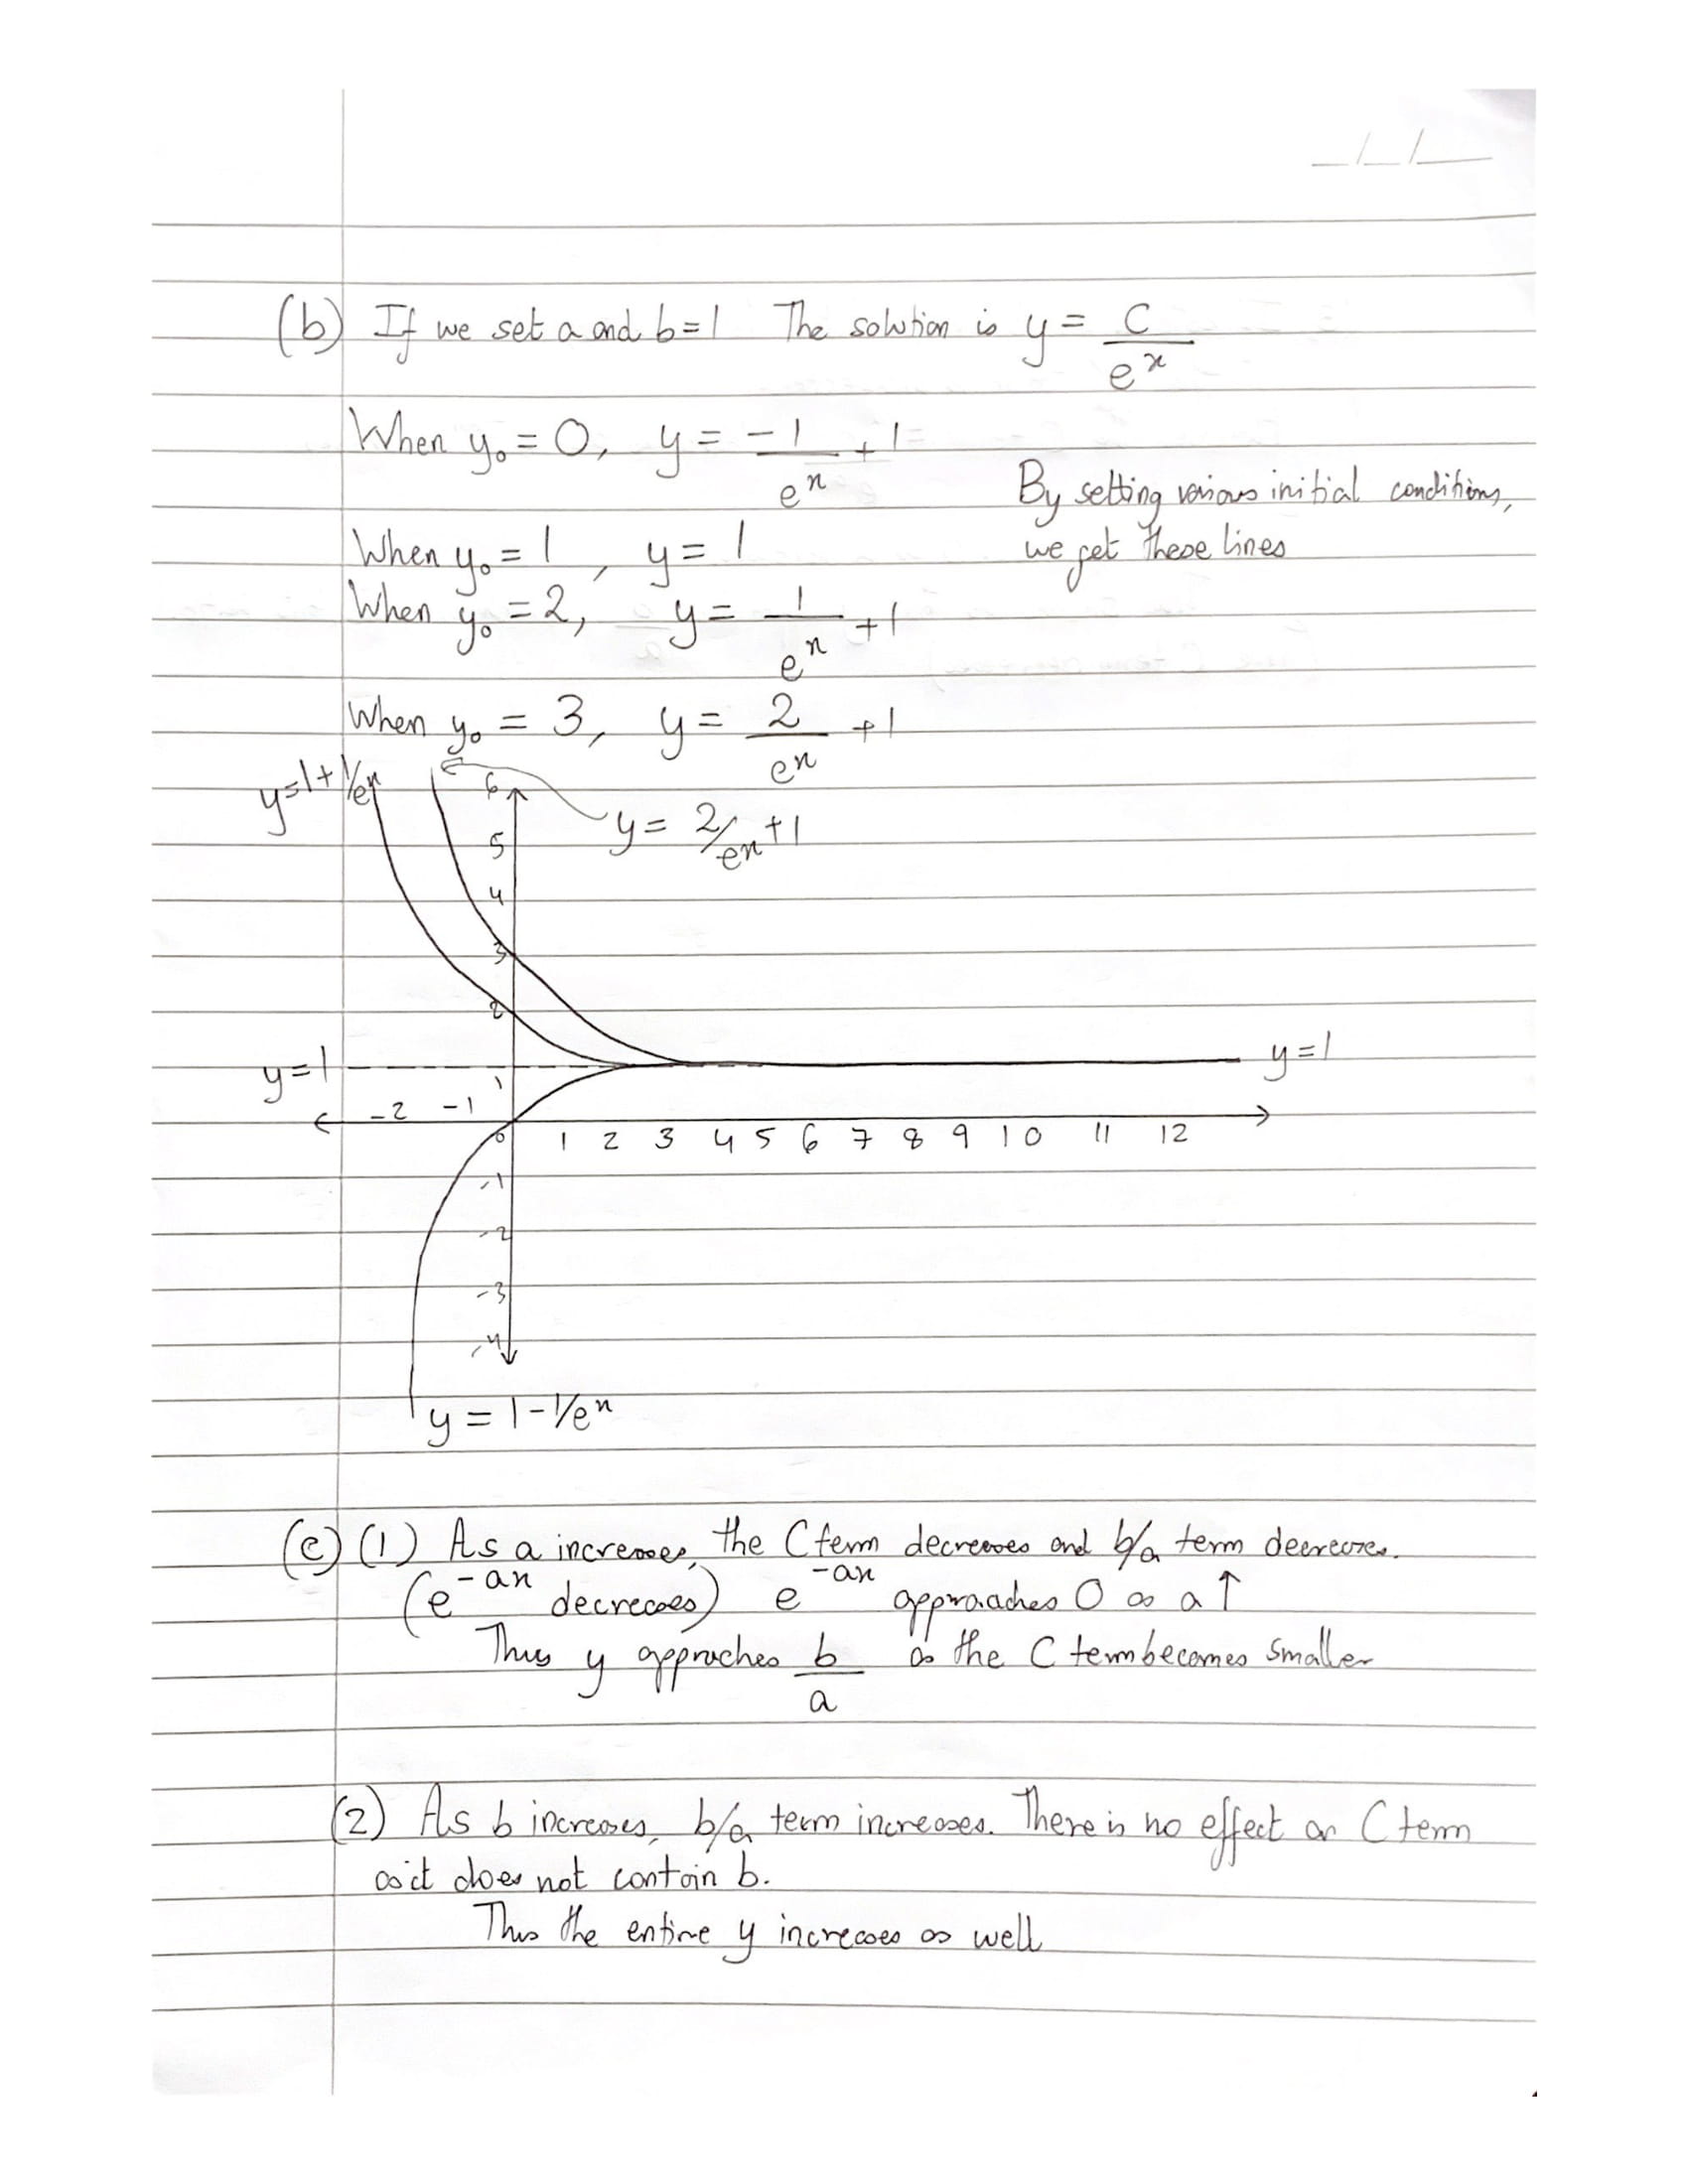 _/_/_
(b) If we set a and b=1 The solution is y = C/e^x
When y₀ = 0, y = -1/e^x + 1
By setting various initial conditions,
we get these lines
When y₀ = 1, y = 1
When y₀ = 2, y = 1/e^x + 1
When y₀ = 3, y = 2/e^x + 1
y=1+1/e^x
y = 2/e^x + 1
6
5
4
3
2
y=1
1
y=1
-2 -1
0 1 2 3 4 5 6 7 8 9 10 11 12
-1
-2
-3
-4
y = 1-1/e^x
(c) (1) As a increases, the C term decreases and b/a term decreases.
(e^-ax decreases) e^-ax approaches 0 as a ↑
Thus y approches b/a as the C term becomes smaller
(2) As b increases, b/a term increases. There is no effect on C term
as it does not contain b.
Thus the entire y increases as well